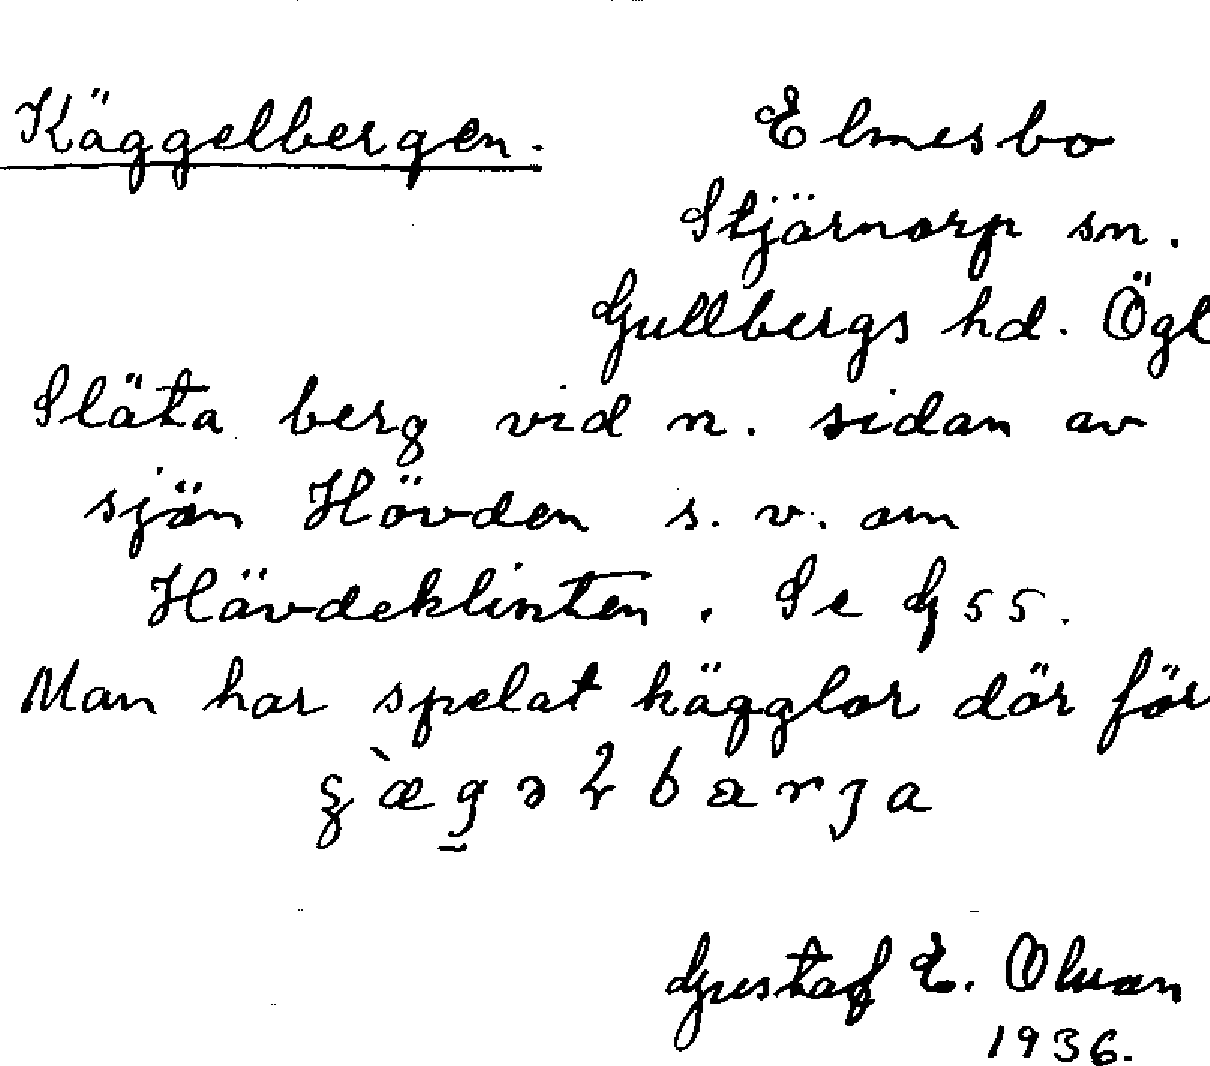 Käggelbergen.
Elmesbo
Stjärnorp sn.
Gullbergs hd. Ögl
Släta berg vid n. sidan av
sjön Hövden s. v. om
Hävdeklinten. Se G 55.
Man har spelat kägglor där för
Gustaf E. Olsson
1936.